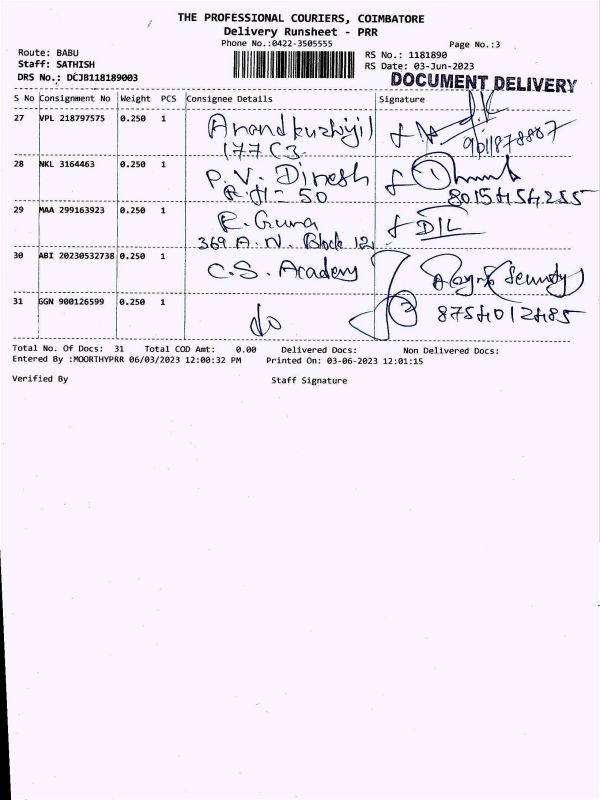 THE PROFESSIONAL COURIERS, COIMBATORE
Delivery Runsheet - PRR
Phone No.:0422-3505555
Page No.:3
Route: BABU
Staff: SATHISH
DRS No.: DCJB118189003
RS No.: 1181890
RS Date: 03-Jun-2023
DOCUMENT DELIVERY
S No Consignment No Weight PCS Consignee Details Signature
27 VPL 218797575 0.250 1
177 C3
28 NKL 3164463 0.250 1 P. V. Dinesh
50
29 MAA 299163923 0.250 1 R. Guna
369 A. N. Block 12
30 ABI 20230532738 0.250 1 C.S. Academy
31 GGN 900126599 0.250 1 do
Total No. Of Docs: 31 Total COD Amt: 0.00 Delivered Docs: Non Delivered Docs:
Entered By :MOORTHYPRR 06/03/2023 12:00:32 PM Printed On: 03-06-2023 12:01:15
Verified By Staff Signature